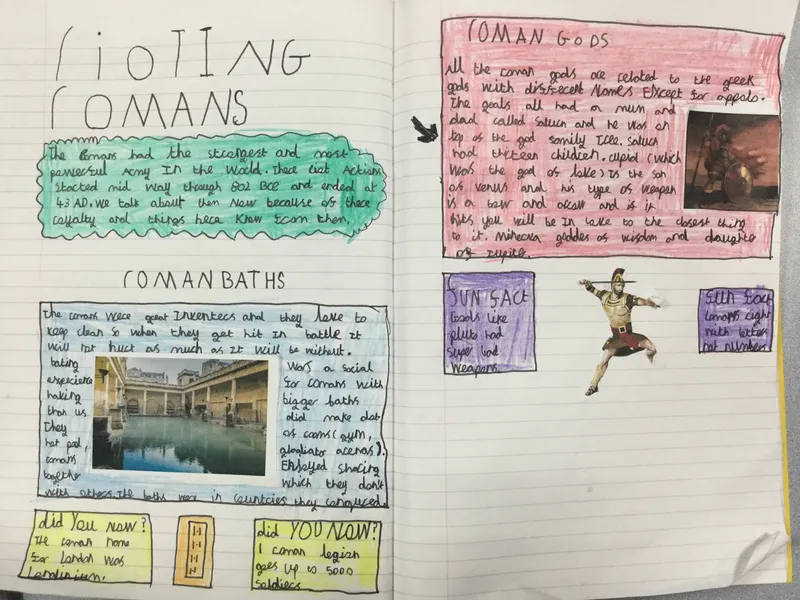 RIOTING
ROMANS
The Romans had the strongest and most
powerful Army In the World. Their Actions
Started mid way through 802 BCE and ended at
43 AD. We talk about them Now because of there
loyalty and things here Know from them.
ROMAN BATHS
The romans were great Inventers and they love to
keep clean so when they get hit In battle It
will not hurt as much as It will be without.
bating was a social
experience for romans with
making bigger baths
than us did make alot
They of rooms (gym,
hot pool, glagiator arenas).
romans Enjoyed sharing
together which they don't
with others. The baths were in countries they conquered.
did You Now?
The roman name
for London was
Londinium.
did YOU NOW?
1 roman legion
goes up to 5000
soldiers
ROMAN GODS
All the roman gods are related to the greek
gods with different Names Except for appolo.
The goals all had a mum and
dad called Saturn and he was on
top of the god family Tree. Saturn
had thirteen children. cupid (which
was the god of love) Is the son
of venus and his type of weapon
is a bow and arrow and is it
hits you will be In love to the closest thing
to it. Minerva goddes of wisdom and daughte
of Jupite.
FUN FACT
Gods like
pluto had
Super bad
weapons
FUN Fact
romans
with letters
not numbers